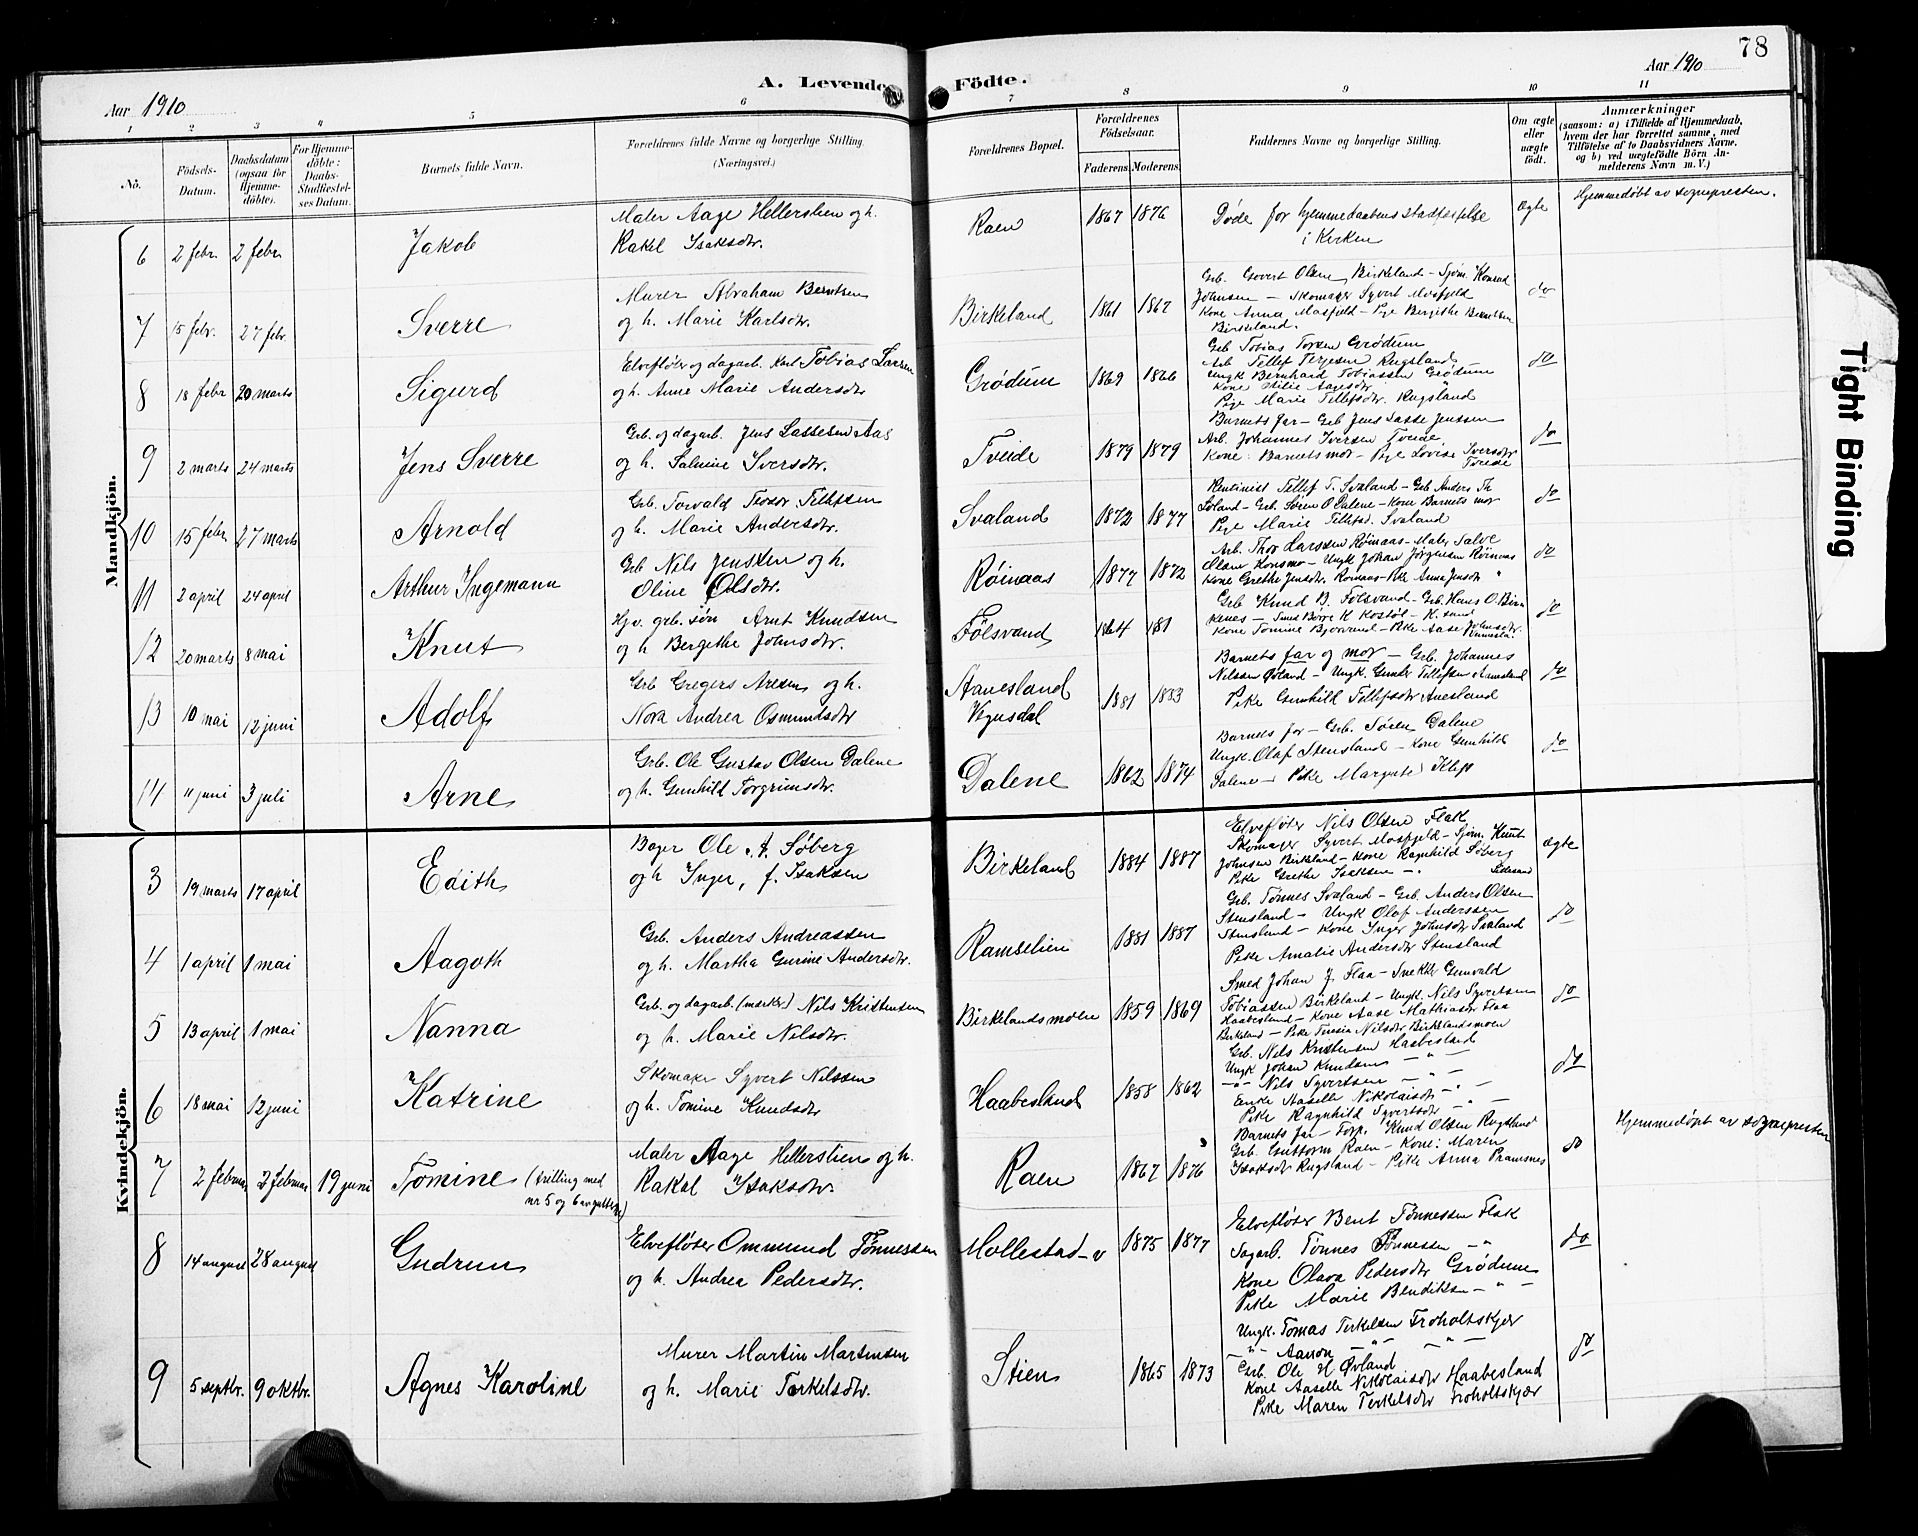 78
Aar 1910
A. Levende Födte.
Aar 1910
1 2 3 4 5 6 7 8 9 10 11
No.
Födsels-Datum.
Daabsdatum (ogsaa for Hjemme-döbte).
For Hjemme-döbte: Daabs-Stadfæstel-ses Datum.
Barnets fulde Navn.
Forældrenes fulde Navne og borgerlige Stilling. (Næringsvei.)
Forældrenes Bopæl.
Forældrenes Födselsaar.
Faderens Moderens
Faddernes Navne og borgerlige Stilling.
Om ægte eller uægte födt.
Anmærkninger
(saasom: a) i Tilfælde af Hjemmedaab,
hvem der har forrettet samme, med
Tilföielse af to Daabsvidners Navne.
og b) ved uægtefödte Börn An-
melderens Navn m. V.)
Mandkjön.
6 2 febr 2 febr. Jakob
Maler Aage Hellerslien og h.
Rakel Isaksdtr.
Raen 1867 1876
Døde før hjemmedaabens stadfæstelse
i Kirken
Ægte
Hjemmedøbt av sognepresten.
7 15 febr. 27 febr. Sverre
Murer Abraham Berntsen
og h. Marie Karlsdtr.
Birkeland 1861 1867
Grb. Govert Olsen Birkeland - Sjøm. Konrad
Johnsen - Skomager Syvert Mosfjeld
Kone Anna Mosfjeld - Pige Bergithe Berntsen
Birkeland.
do
8 18 febr 20 marts Sigurd
Elvefløter og dagarb. Karl Tobias Larsen
og h. Anne Marie Andersdtr
Grødum 1869 1866
Grb Tobias Torsen Grødum
Arb. Tellef Terjesen Rugsland
Ungk Bernhard Tobiassen Grødum
Kone Aagesdtr. "
Pige Marie Tellefsdtr. Rugsland
do
9 2 marts 24 marts Jens Sverre
Grb. og dagarb. Jens Lassesen Aas
og h. Salmine Iversdtr.
Tveide 1879 1879
Barnets far - Grb Jens Lasse Jenssen
Arb. Johannes Iversen Tveide
Kone: Barnets mor - Pige Lovise Iversdtr
Tveide
do
10 15 febr 27 marts Arnold
Grb. Torvald Teodor Tellefsen
og h. Marie Andersdtr.
Svaland 1872 1877
Rentinist Tellef T. Svaland - Grb Anders Th
Svland - Grb. Søren O Dalene - Kone Barnets mor
Pige Marie Tellefsd. Svaland
do
11 2 april 24 april Arthur Ingemann
Grb Nils Jenssen og h.
Oline Olsdtr.
Røinaas 1877 1872
Arb. Thor Larssen Røinaas - Maler Salve
Olsen Konsmo - Ungk Johan Jørgensen Røinaas
Kone Grethe Jensdtr. Roinaas - Pike Anne Jensdtr "
do
12 20 marts 8 mai Knut
Hjv. grb. søn Arnt Knudsen
og h Bergithe Johnsdtr.
Fólsvand 1864 181
Grb Knud B. Folsvand - Grb. Hans O. Birk
kenes - Smed Børre K Kostøl - K. sand
Kone Tomine Bjorvand - Pike Aase Johnsdtr.
do
13 10 mai 12 juni Adolf
Grb Gregers Aresen og h.
Nora Andrea Osmundsdtr
Aanesland
Vegusdal 1881 1883
Barnets far og mor - Grb. Johannes
Nilssen Øvland - Ungk. Gunder Tellefsen Aanesland
Pike Gunhild Tellefsdtr Anesland
do
14 11 juni 3 juli Arne
Grb. Ole Gustav Olsen Dalene
og h. Gunhild Torgrimsdtr.
Dalene 1862 1874
Barnets far - Grb. Søren Dalene
Ungk. Olaf Stensland - Kone Gunhild
Dalene - Pike Margate Klep
do
Kvindekjön.
3 19 marts 17 april Edith
Bager Ole A. Søberg
og h Inger, f. Isaksen
Birkeland 1884 1887
Elvefløter Nils Olsen Flak
Skomager Syvert Mosfjeld - Sjøm. Knut
Johnsen Birkeland - Kone Ragnhild Søberg
Pike Grethe Isaksen
ægte
4 1 april 1 mai Aagoth
Grb. Anders Andreassen
og h. Martha Gurine Andersdtr.
Ramselien 1881 1887
Grb. Tønnes Svaland - Grb. Anders Olsen
Stensland - Ungk Olaf Anderssen
Stensland - Kone Inger Johnsdtr Svaland
Pike Amalie Andersdtr Stensland
do
5 13 april 1 mai Nanna
Grb. og dagarb. (mærker) Nils Kristensen
og h. Marie Nilsdtr.
Birkelandsmoen 1859 1869
Smed Johan J. Flaa - Snekker Gunvald
Tobiassen Birkeland - Ungk. Nils Syvertsen
Haabesland - Kone Aase Mathiasdtr Flaa
Birkeland - Pike Tomine Nilsdtr Birkelandsmoen
do
6 18 mai 12 juni Katrine
Skomaker Syvert Nilssen
og h. Tomine Knudsdtr
Haabesland 1858 1862
Grb. Nils Kristensen Haabesland
Ungk Johan Knudsen - " -
- " - Nils Syvertsen - " -
Enke Aaselle Nikolaisdtr - " -
Pike Ragnhild Syvertsdtr - " -
do
7 2 februar 3 februar 19 juni Tomine (trilling med
nr 5 og 6 av guttene)
Maler Aage Hellerslien og h.
Rakel Isaksdtr.
Raen 1867 1876
Barnets far - Forp. Knud Olsen Rugsland
Grb. Guttorm Raen - Kone: Maren
Isaksdtr Rugsland - Pike Anna Pramsnes
do
Hjemmedøpt av sognepresten
8 14 august 28 august Gudrun
Elvefløter Ommund Tønnessen
og h. Andrea Pedersdtr.
Mollestad - v 1875 1877
Elvefløter Bent Tønnessen Flak
Dagarb. Tønnes Tønnessen - " -
Kone Olava Pedersdtr Grødum
Pike Marie Bendiksen - " -
do
9 5 septbr. 9 oktbr. Agnes Karoline
Murer Martin Martinsen
og h. Marie Terkelsdtr.
Stien 1865 1873
Ungk. Tomas Terkelsen Froholtskjær
- " - Aanon - " - - " -
Grb. Ole H Øvland
Kone Aaselle Nikolaisdtr Haabesland
Pike Maren Terkelsdtr Froholtskjær
do
Tight Binding